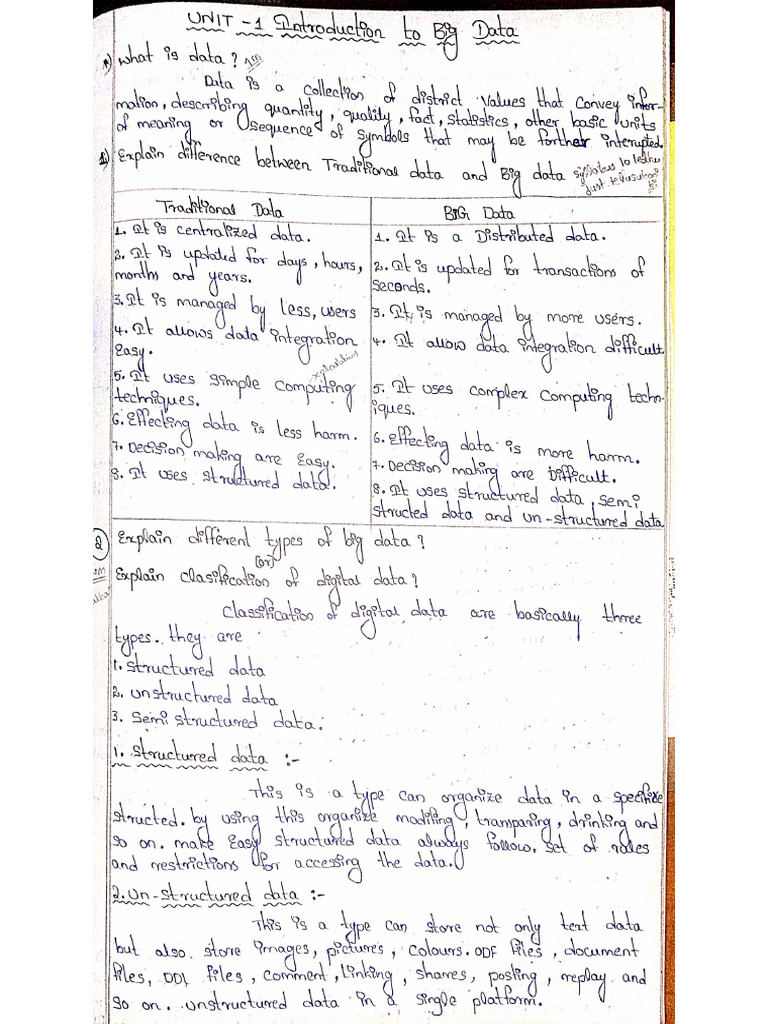 UNIT - 1 Introduction to Big Data
*) What is data? 2M
Data is a collection of district values that convey infor-
mation, describing quantity, quality, fact, statistics, other basic units
of meaning or sequence of symbols that may be forther interupted.
1) Explain difference between Traditional data and Big data
Traditional Data BIG Data
1. It is centralized data. 1. It is a Distributed data.
2. It is updated for days, hours, 2. It is updated for transactions of
months and years. seconds.
3. It is managed by less, users 3. It, is managed by more users.
4. It allows data integration 4. It allow data integration difficult.
Easy.
5. It uses simple computing 5. It uses complex computing techn-
techniques. iques.
6. Effecting data is less harm. 6. Effecting data is more harm.
7. Decision making are Easy. 7. Decision making are Difficult.
8. It uses structured data. 8. It uses structured data, semi
structed data and un-structured data
2 Explain different types of big data?
[or]
Explain classification of digital data?
Classification of digital data are basically three
types. they are
1. structured data
2. unstructured data
3. semi structured data.
1. structured data :-
This is a type can organize data in a specifize
structed. by using this organize modifing, transparing, drinking and
so on. make Easy structured data always follow. set of rules
and restrictions for accessing the data.
2. un-structured data :-
This is a type can store not only text data
but also store images, pictures, colours. ODF files, document
files, DDL files, comment, linking, shares, posting, replay and
so on. unstructured data in a single platform.